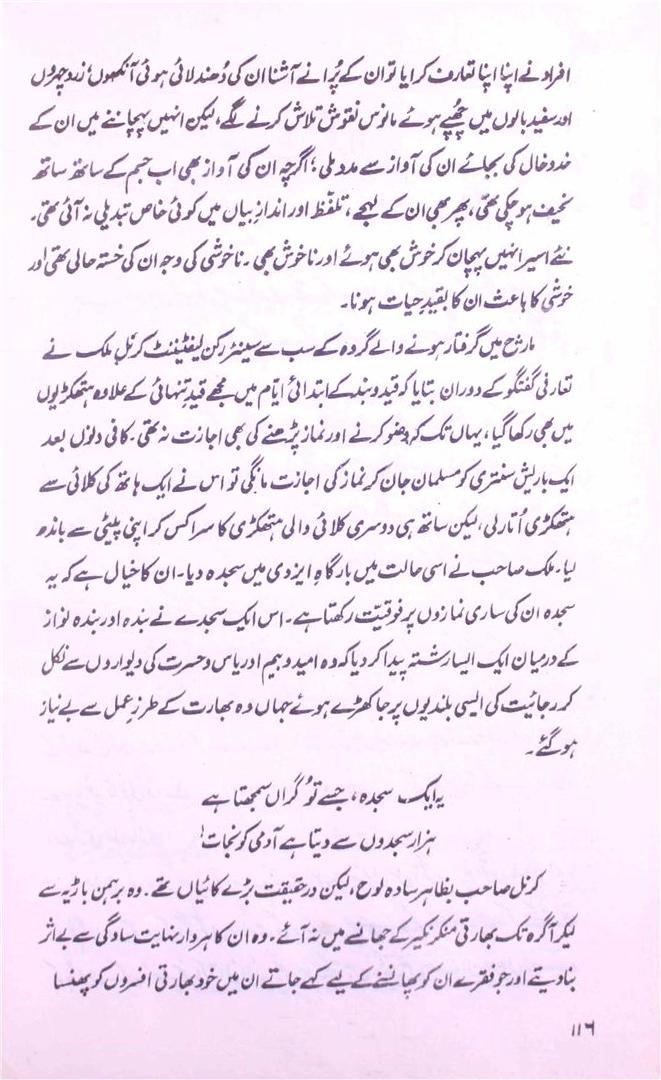 افراد نے اپنا اپنا تعارف کرایا تو ان کے پُرانے آشنا ان کی دُھندلائی ہوئی آنکھوں، زرد چہروں
اور سفید بالوں میں چُھپے ہوئے مانوس نقوش تلاش کرنے لگے، لیکن انہیں پہچاننے میں ان کے
خدوخال کی بجائے ان کی آواز سے مدد ملی؛ اگرچہ ان کی آواز بھی اب جسم کے ساتھ ساتھ
نحیف ہو چکی تھی، پھر بھی ان کے لہجے، تلفّظ اور اندازِ بیان میں کوئی خاص تبدیلی نہ آئی تھی۔
نئے اسیر انہیں پہچان کر خوش بھی ہوئے اور ناخوش بھی۔ ناخوشی کی وجہ ان کی خستہ حالی تھی اور
خوشی کا باعث ان کا بقیدِ حیات ہونا۔
مارچ میں گرفتار ہونے والے گروہ کے سب سے سینئر رکن لیفٹیننٹ کرنل ملک نے
تعارفی گفتگو کے دوران بتایا کہ قید و بند کے ابتدائی ایّام میں مجھے قیدِ تنہائی کے علاوہ ہتھکڑیوں
میں بھی رکھا گیا، یہاں تک کہ وضو کرنے اور نماز پڑھنے کی بھی اجازت نہ تھی۔ کافی دنوں بعد
ایک باریش سنتری کو مسلمان جان کر نماز کی اجازت مانگی تو اس نے ایک ہاتھ کی کلائی سے
ہتھکڑی اُتار لی، لیکن ساتھ ہی دوسری کلائی والی ہتھکڑی کا سرا کس کر اپنی پیٹی سے باندھ
لیا۔ ملک صاحب نے اسی حالت میں بارگاہِ ایزدی میں سجدہ دیا۔ ان کا خیال ہے کہ یہ
سجدہ ان کی ساری نمازوں پر فوقیّت رکھتا ہے۔ اس ایک سجدے نے بندہ اور بندہ نواز
کے درمیان ایک ایسا رشتہ پیدا کر دیا کہ وہ امید و بیم اور یاس و حسرت کی دیواروں سے نکل
کر رجائیت کی ایسی بلندیوں پر جا کھڑے ہوئے جہاں وہ بھارت کے طرزِ عمل سے بے نیاز
ہو گئے۔
یہ ایک سجدہ، جسے تُو گراں سمجھتا ہے
ہزار سجدوں سے دیتا ہے آدمی کو نجات!
کرنل صاحب بظاہر سادہ لوح، لیکن درحقیقت بڑے کائیاں تھے۔ وہ برہمن باڑیہ سے
لیکر آگرہ تک بھارتی منکر نکیر کے جھانسے میں نہ آئے۔ وہ ان کا ہر وار نہایت سادگی سے بے اثر
بنا دیتے اور جو فقرے ان کو پھانسنے کے لیے کہے جاتے ان میں خود بھارتی افسروں کو پھنسا
۱۱۶